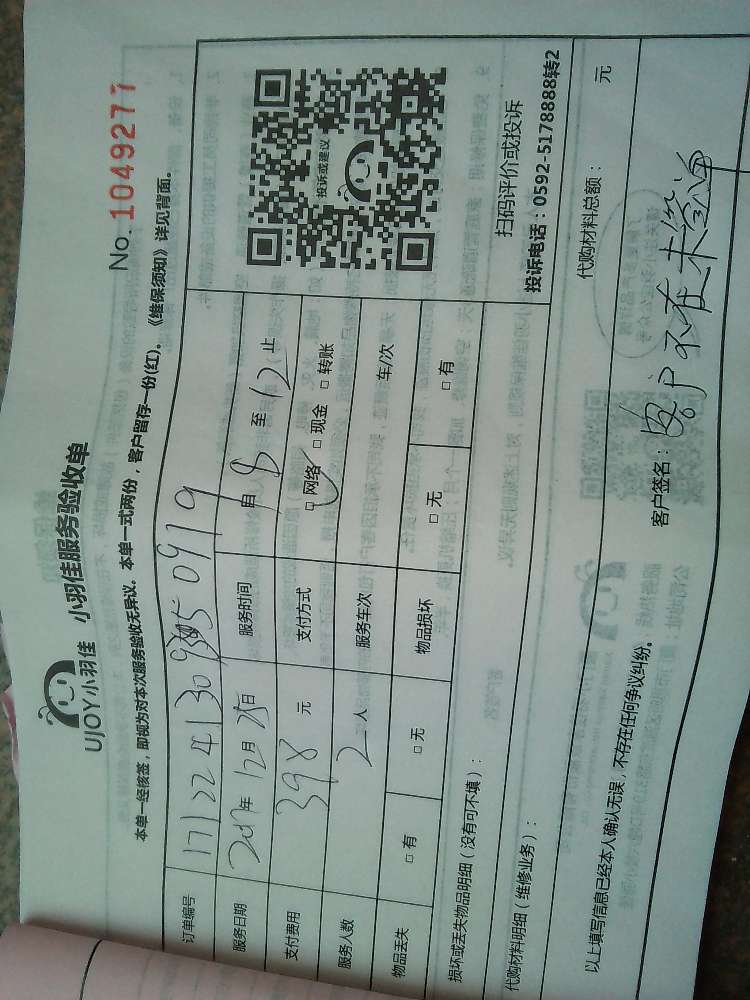 No. 1049277
UJOY小羽佳 小羽佳服务验收单
本单一经核签，即视为对本次服务验收无异议。本单一式两份，客户留存一份(红)。《维保须知》详见背面。
订单编号
服务日期 2017年 12月 25日 服务时间 自 8 至 12 止
支付费用 398 元 支付方式 □ 网络 □ 现金 □ 转账
服务人数 2 人 服务车次 车/次
物品丢失 □ 有 □ 无 物品损坏 □ 无 □ 有
投诉或建议
扫码评价或投诉
投诉电话：0592-5178888转2
损坏或丢失物品明细（没有可不填）：
代购材料明细（维修业务）： 代购材料总额： 元
以上填写信息已经本人确认无误，不存在任何争议纠纷。
客户签名：客户不在未签单